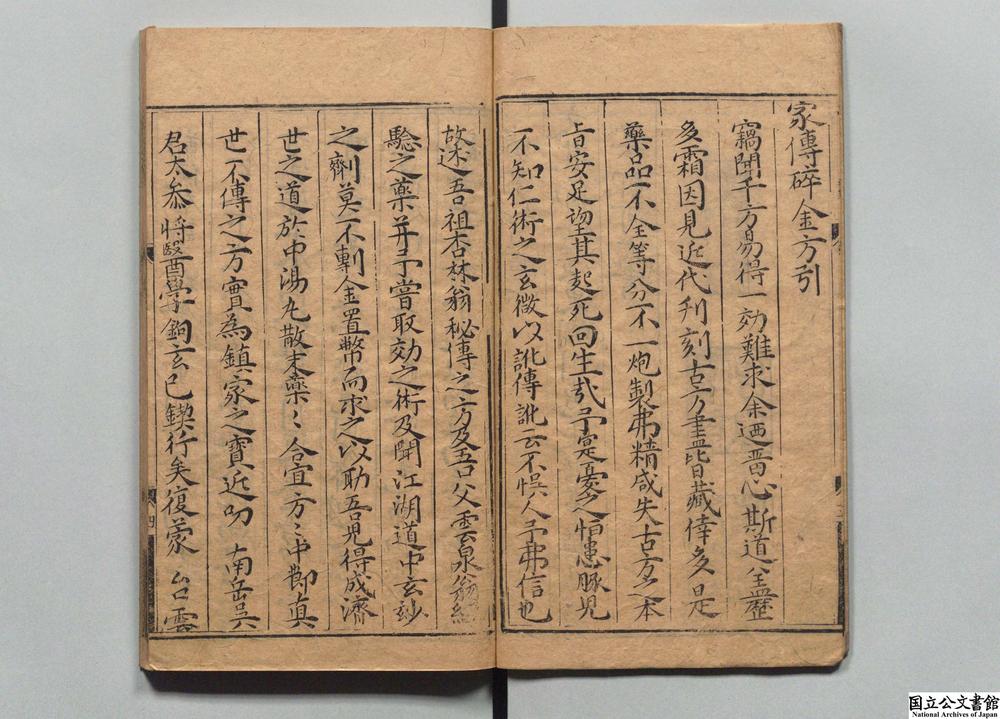 家傳碎金方引
竊聞千方易得一効難求余迺晋心斯道全盡歷
多霜因見近代刋刻古方書皆藏倖多是
藥品不全等分不一炮製弗精咸失古方之本
㫖安足望其起死回生㢤予寔憂之怕患豚児
不知仁術之玄微以訛傳訛云不悮人予弗信也
故述吾祖杏林翁秘傳之方及吾父雲泉翁經
騐之藥并予嘗取効之術及聞江湖道中玄玅
之劑莫不剸金置幣而求之以助吾児得成濟
世之道於中湯丸散末藥〻合宜方〻中節真
世不傳之方實為鎮家之寶近叨 南岳吳
君太叅將醫學銅玄已鍥行矣復蒙 台雲
四
国立公文書館
National Archives of Japan